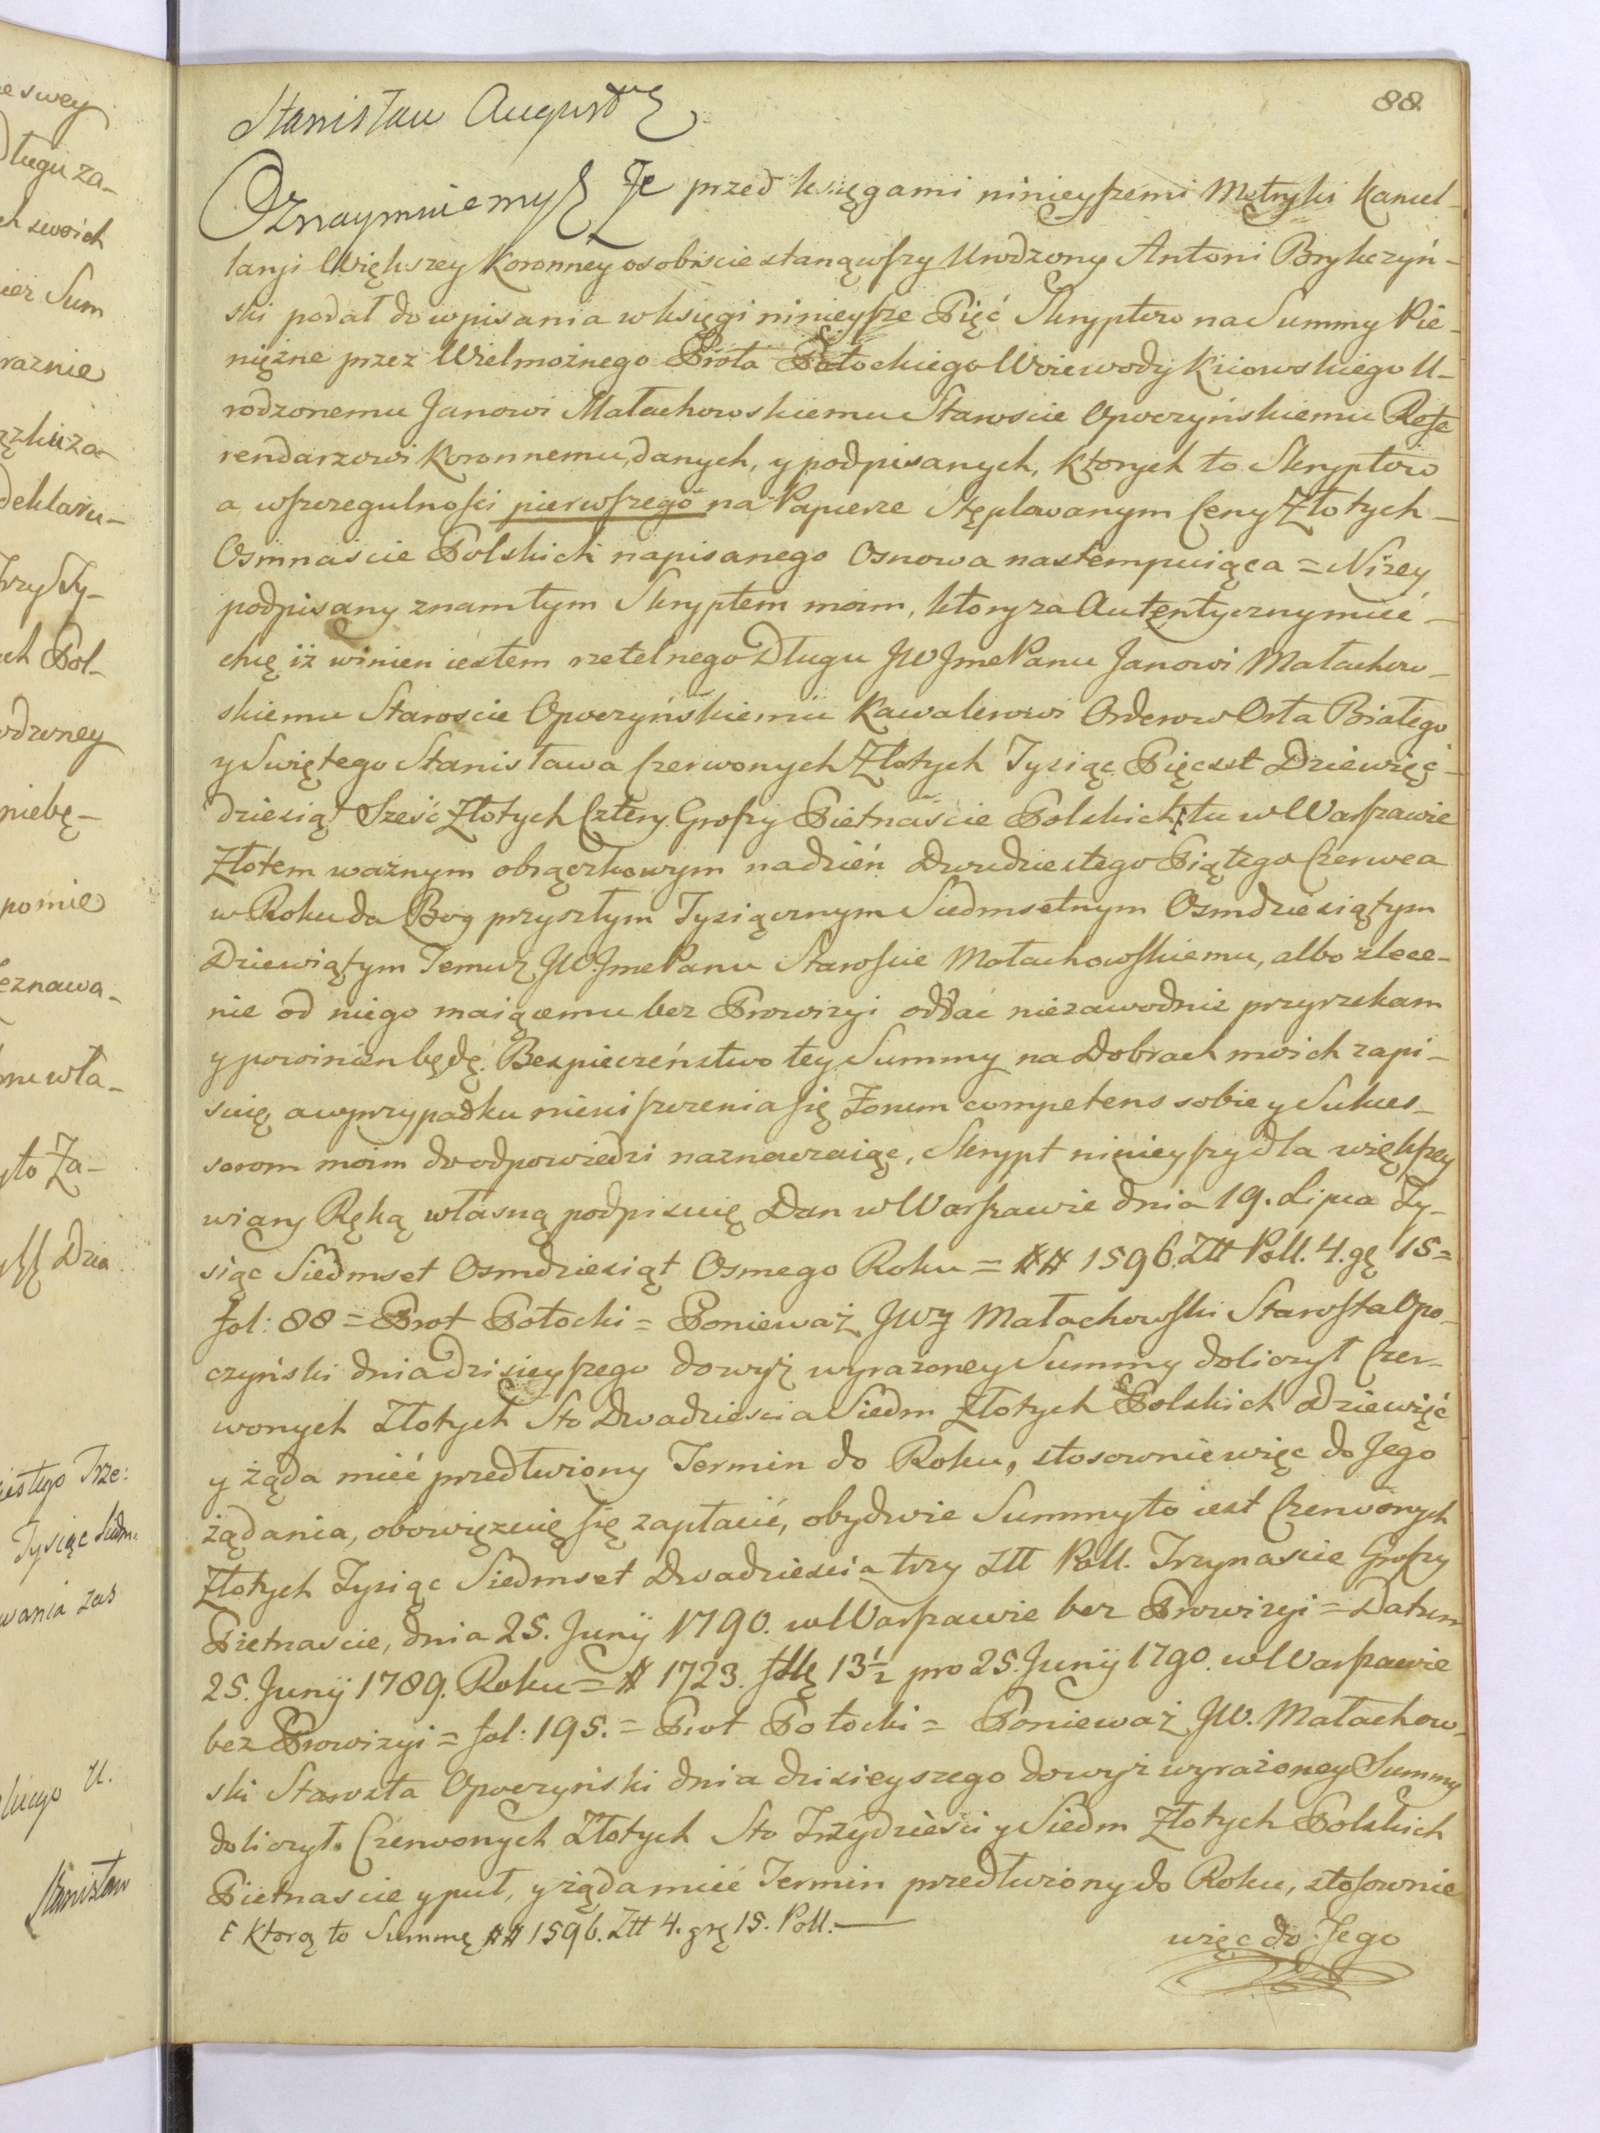 88.
Stanisław August
Oznaymuiemy Że przed księgami ninieyszemi Metryki Kancel-
laryi Większey Koronney osobiscie stanąwszy Urodzony Antoni Brykczyń-
ski podał do wpisania w księgi ninieysze Pięć Skryptow na Summy Pie-
niężne przez Wielmożnego Prota Potockiego Woiewody Kiiowskiego U-
rodzonemu Janowi Małachowskiemu Staroscie Opoczyńskiemu Refe
rendarzowi Koronnemu, danych, y podpisanych, Ktorych to Skryptow
a wszczegulności pierwszego na Papierze Stęplowanym Ceny Złotych
Osmnaście Polskich napisanego Osnowa nastempuiąca = Niżey
podpisany znam tym Skryptem moim, ktory za Autentyczny mieć
chcę iż winien iestem rzetelnego Długu JW JmcPanu Janowi Małachow-
skiemu Staroscie Opoczyńskiemu Kawalerowi Orderow Orła Białego
y Swiętego Stanisława Czerwonych Złotych Tysiąc Pięcset Dziewięć-
dziesiąt Sześć Złotych Cztery Groszy Pietnaście Polskich F tu w Warszawie
Złotem ważnym obrączkowym na dzień Dwudziestego Piątego Czerwca
w Roku da Bog przyszłym Tysiącznym Siedmsetnym Osmdziesiątym
Dziewiątym Temuż JW. JmcPanu Staroscie Małachowskiemu, albo zlece-
nie od niego maiącemu bez Prowizyi oddać niezawodnie przyrzekam
y powinien będę. Bezpieczeństwo tey Summy na Dobrach moich zapi-
suię a w przypadku nieuiszczenia się Forum competens sobie y Sukces-
sorom moim do odpowiedzi naznaczaiąc, Skrypt ninieyszy dla większey
wiary Ręką własną podpisuię Dan w Warszawie dnia 19. Lipca Ty-
siąc Siedmset Osmdziesiąt Osmego Roku = ## 1596. Złł Poll. 4. gę 15 =
fol: 88 = Prot Potocki = Ponieważ JWy Małachowski Starosta Opo-
czyński dnia dzisieyszego do wyż wyrażoney Summy doliczył Czer-
wonych Złotych Sto Dwadziescia Siedm Złotych Polskich Dziewięć
y żąda mieć przedłużony Termin do Roku, stosownie więc do Jego
żądania, obowięzuię się zapłacić, obydwie Summy to iest Czerwonych
Złotych Tysiąc Siedmset Dwadzieścia trzy Złł Poll. Trzynaście Groszy
Pietnascie, dnia 25. Junij 1790. w Warszawie bez Prowizyi = Datum
25. Junij 1789. Roku = # 1723. 13½ pro 25. Junij 1790. w Warszawie
bez Prowizyi = fol: 195. = Prot Potocki = Ponieważ JW. Małachow-
ski Starosta Opoczyński dnia dzisieyszego do wyż wyrażoney Summy
doliczył Czerwonych Złotych Sto Trzydzieści y Siedm Złotych Polskich
Pietnascie y puł, y żąda mieć Termin przedłużony do Roku, stosownie
F Ktorą to Summę ## 1596. Złł 4. grę 15. Poll.
więc do Jego